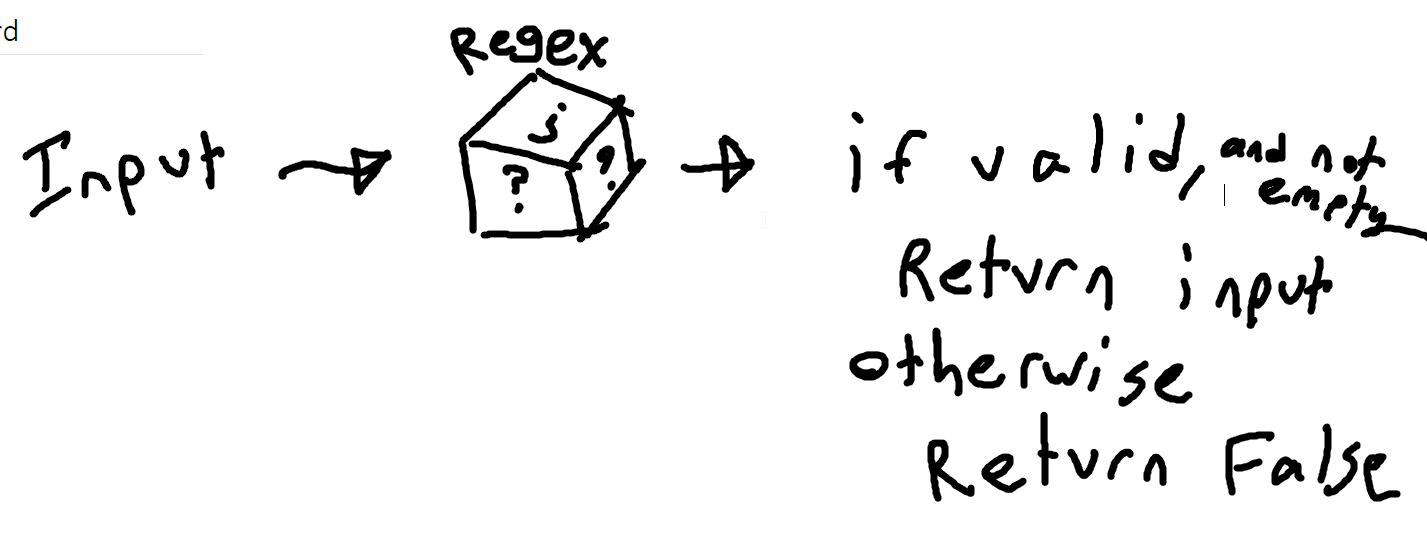 rd
Regex
Input
? ? ?
if valid, and not
empty
Return input
otherwise
Return False